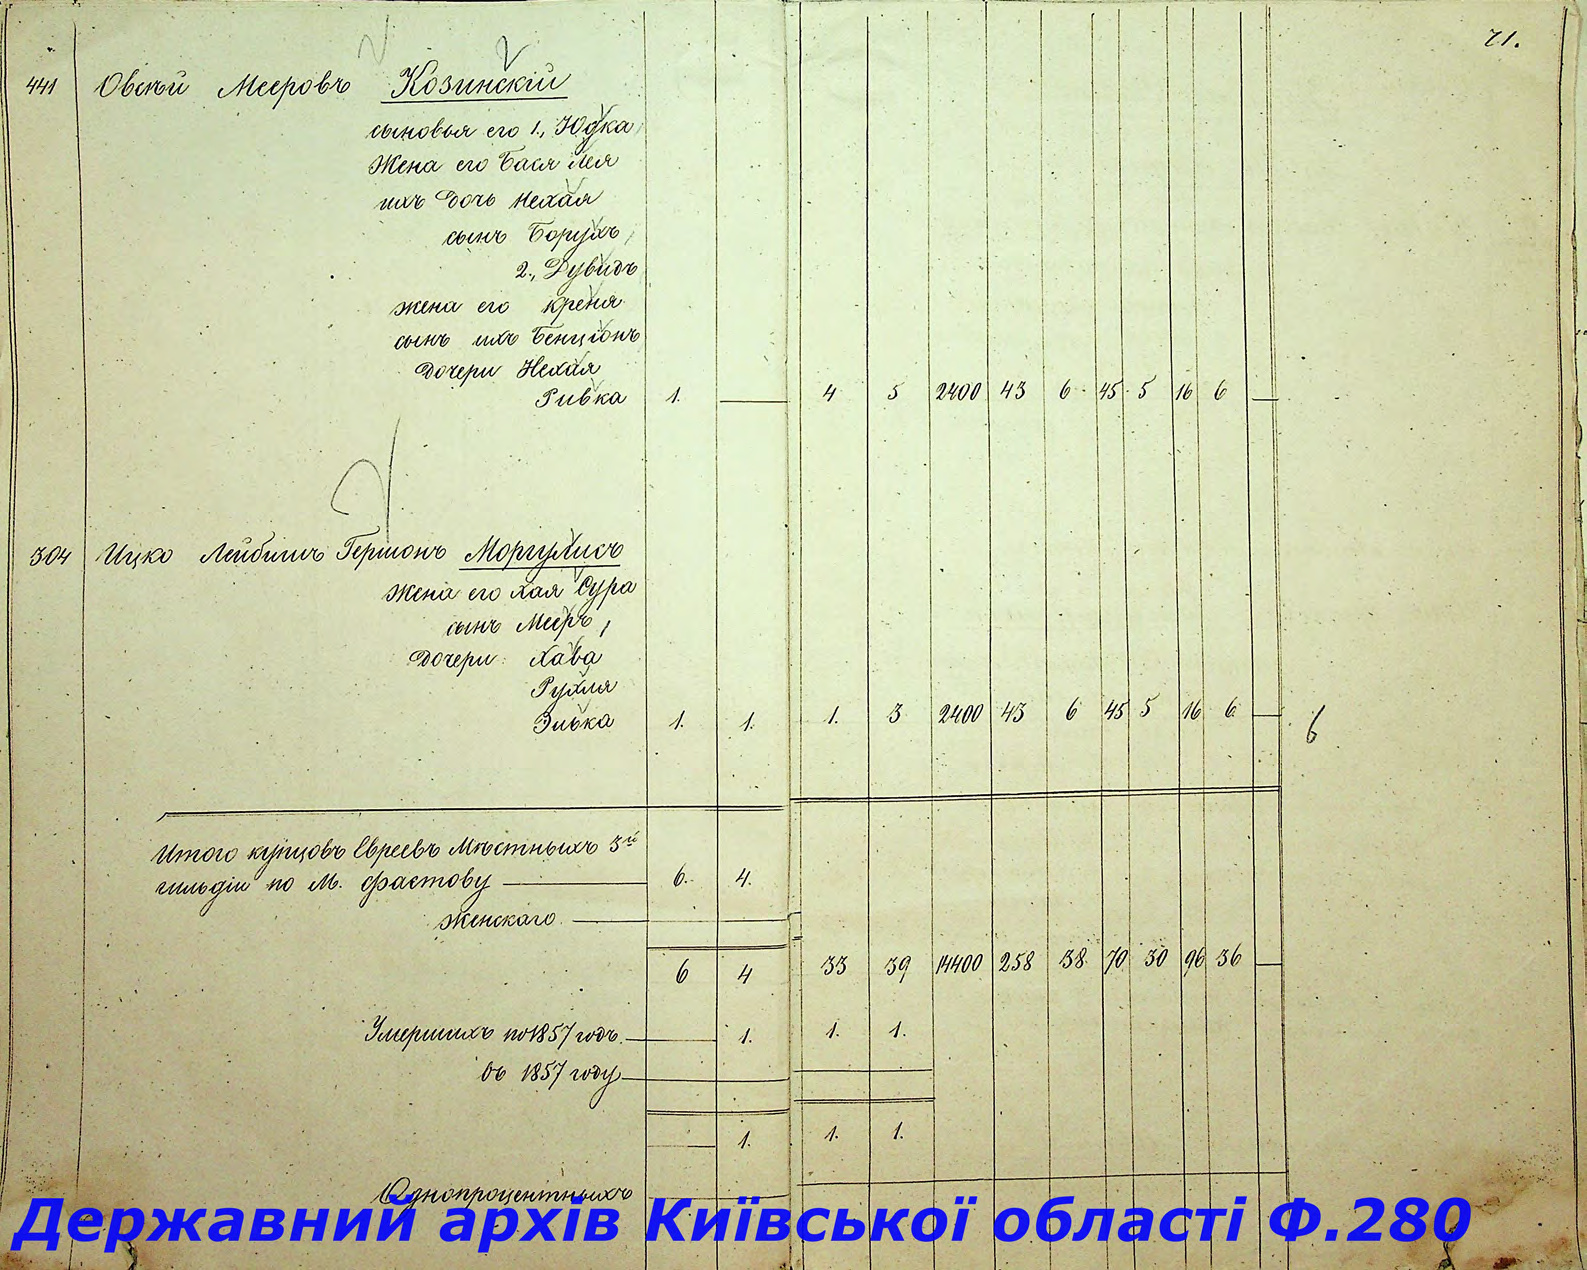 71.
441 Овсѣй Мееровъ Козинскій
сыновья его 1., Юдка
Жена его Бася Лея
ихъ Дочь Нехая
сынъ Борухъ
2., Дувидъ
жена его Креня
сынъ ихъ Бенціонъ
Дочери Нехая
Ривка 1. — 4 5 2400 43 6 45 5 16 6 —
304 Ицко Лейбишъ Гершонъ Моргулисъ
Жена его Хая Сура
сынъ Мееръ
Дочери Хава
Рухля
Зивка 1. 1. 1. 3 2400 43 6 45 5 16 6 — 6
Итого купцовъ Евреевъ Мѣстныхъ 3й
гильдіи по М. Фастову — 6. 4.
Женскаго —
6 4 33 39 14400 258 38 70 30 96 36 —
Умершихъ по 1857 годъ. — 1. 1. 1.
въ 1857 году —
— 1. 1. 1.
Однопроцентныхъ
Державний архів Київської області Ф.280